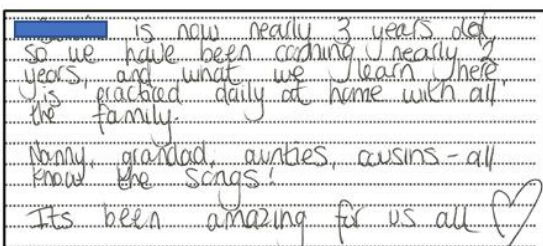 is now nearly 3 years old,
so we have been coming nearly 2
years, and what we learn here
is practiced daily at home with all
the family.
Nanny, grandad, aunties, cousins - all
know the songs!
Its been amazing for us all ♡